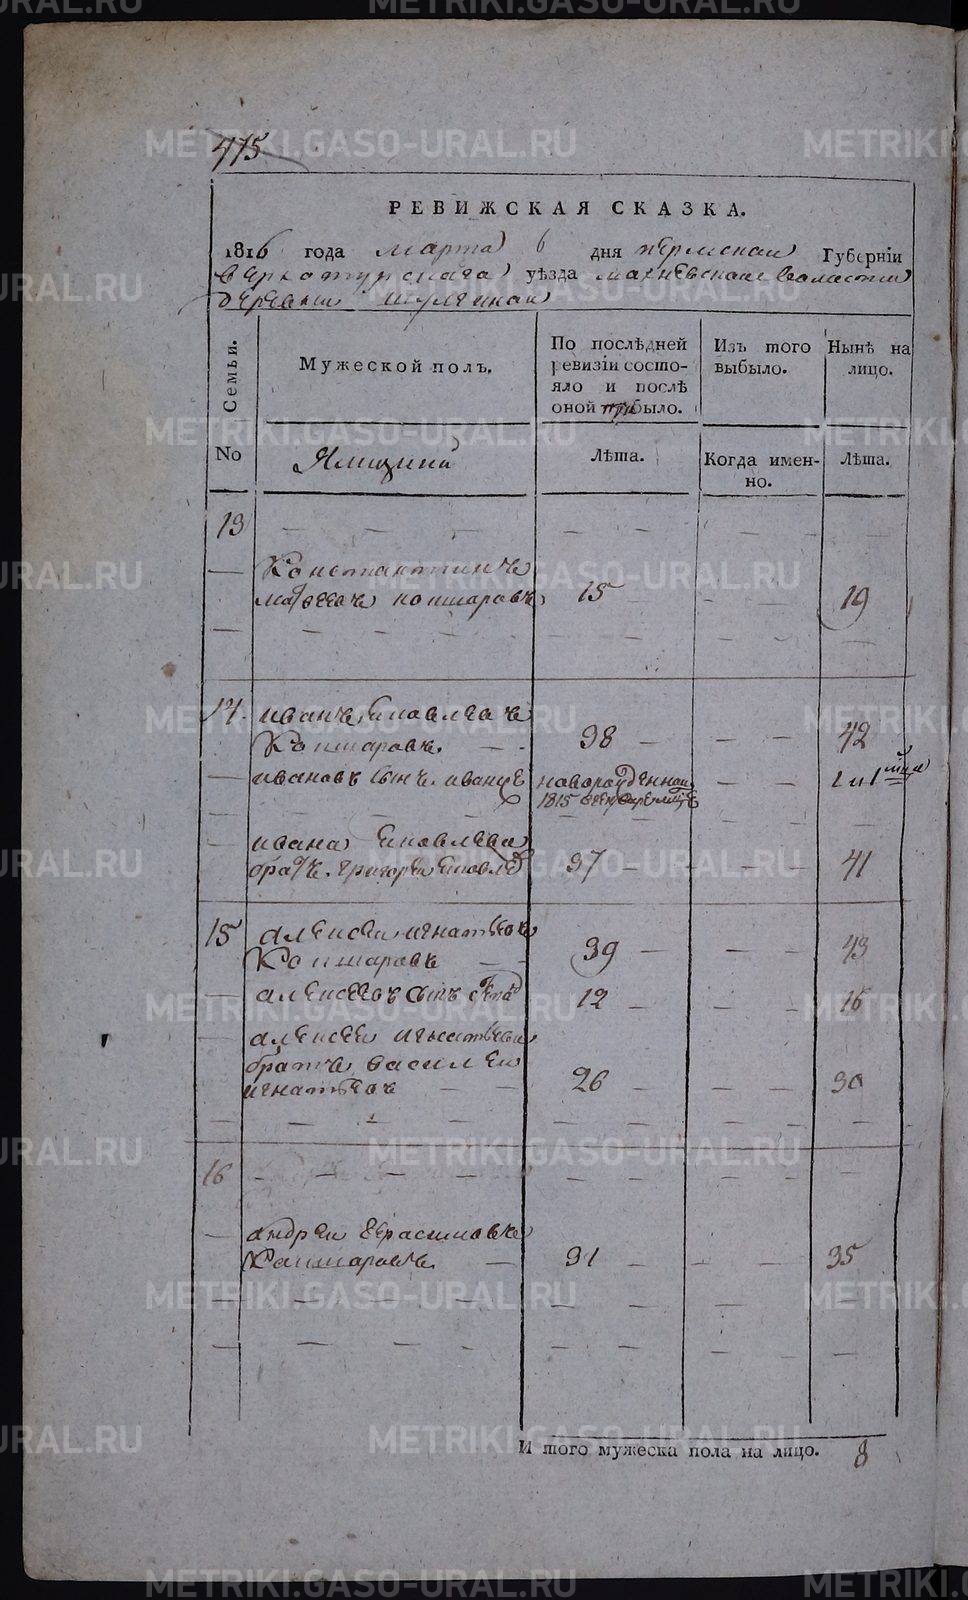 415
РЕВИЖСКАЯ СКАЗКА.
1816 года марта 6 дня пермской Губерніи
верхотурскаго уѣзда махневской волости
деревни
Семьи.
No
Мужеской полъ.
Ямщики
По послѣдней
ревизіи состо-
яло и послѣ
оной прибыло.
Лѣта.
Изъ того
выбыло.
Когда имен-
но.
Нынѣ на
лицо.
Лѣта.
13
Константинъ
15 19
14. иванъ яковлевъ
Копшаровъ. 38 42
ивановъ сынъ новорожденной
1815
ивана яковлева
братъ григорей яковлев 37 41
15 алексей игнатьевъ
Копшаровъ 39 43
алексеевъ сынъ 12 16
алексея игнатьева
братъ василей
игнатьевъ 26 30
16
андрей герасимовъ
Копшаровъ 31 35
И того мужеска пола на лицо. 8
METRIKI.GASO-URAL.RU